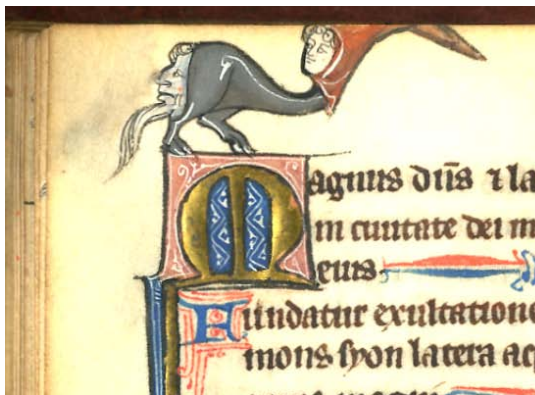 Magnus dn̄s ⁊ la
in ciuitate dei m
eius
Fundatur exultatione
mons syon latera aq